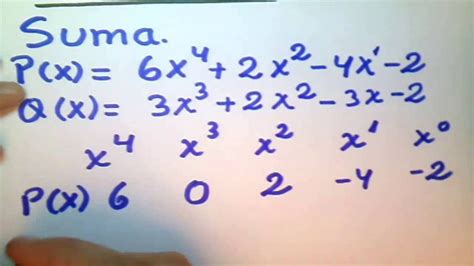 Suma.
P(x) = 6x⁴ + 2x² - 4x¹ - 2
Q(x) = 3x³ + 2x² - 3x - 2
x⁴ x³ x² x¹ x⁰
P(x) 6 0 2 -4 -2